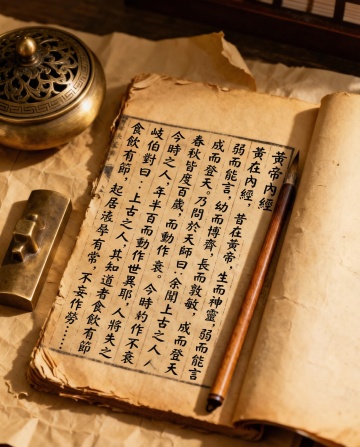 黃帝內經
黃在內經，昔在黃帝，生而神靈，弱而能言
弱而能言，幼而博齊，長而敦敏，成而登天
成而登天。乃問於天師曰：余聞上古之人
春秋皆度百歲，而動作衰。今時約作不衰
今時之人，年半百而動作世異耶，人將失之
岐伯對曰：上古之人，其知道者食飲有節
食飲有節，起居有常，不妄作勞……